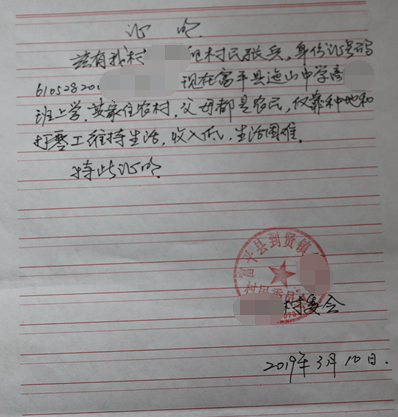 证明
兹有我村 组村民张兵，身份证号码
61052820 现在富平县迤山中学高
班上学，其家住农村，父母都是农民，仅靠种地和
打零工维持生活，收入低、生活困难。
特此证明
富平县到贤镇
村民委员
村委会
2019年3月10日.